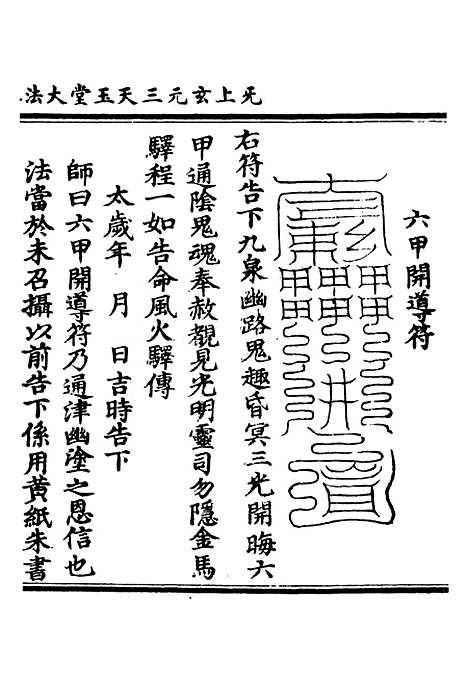 无上玄元三天玉堂大法
六甲開導符
右符告下九泉幽路鬼趣昏冥三光開晦六
甲通陰鬼魂奉赦覩見光明靈司勿隱金馬
驛程一如告命風火驛傳
太歲年　月　日吉時告下
師曰六甲開導符乃通津幽塗之恩信也
法當於未召攝以前告下係用黃紙朱書